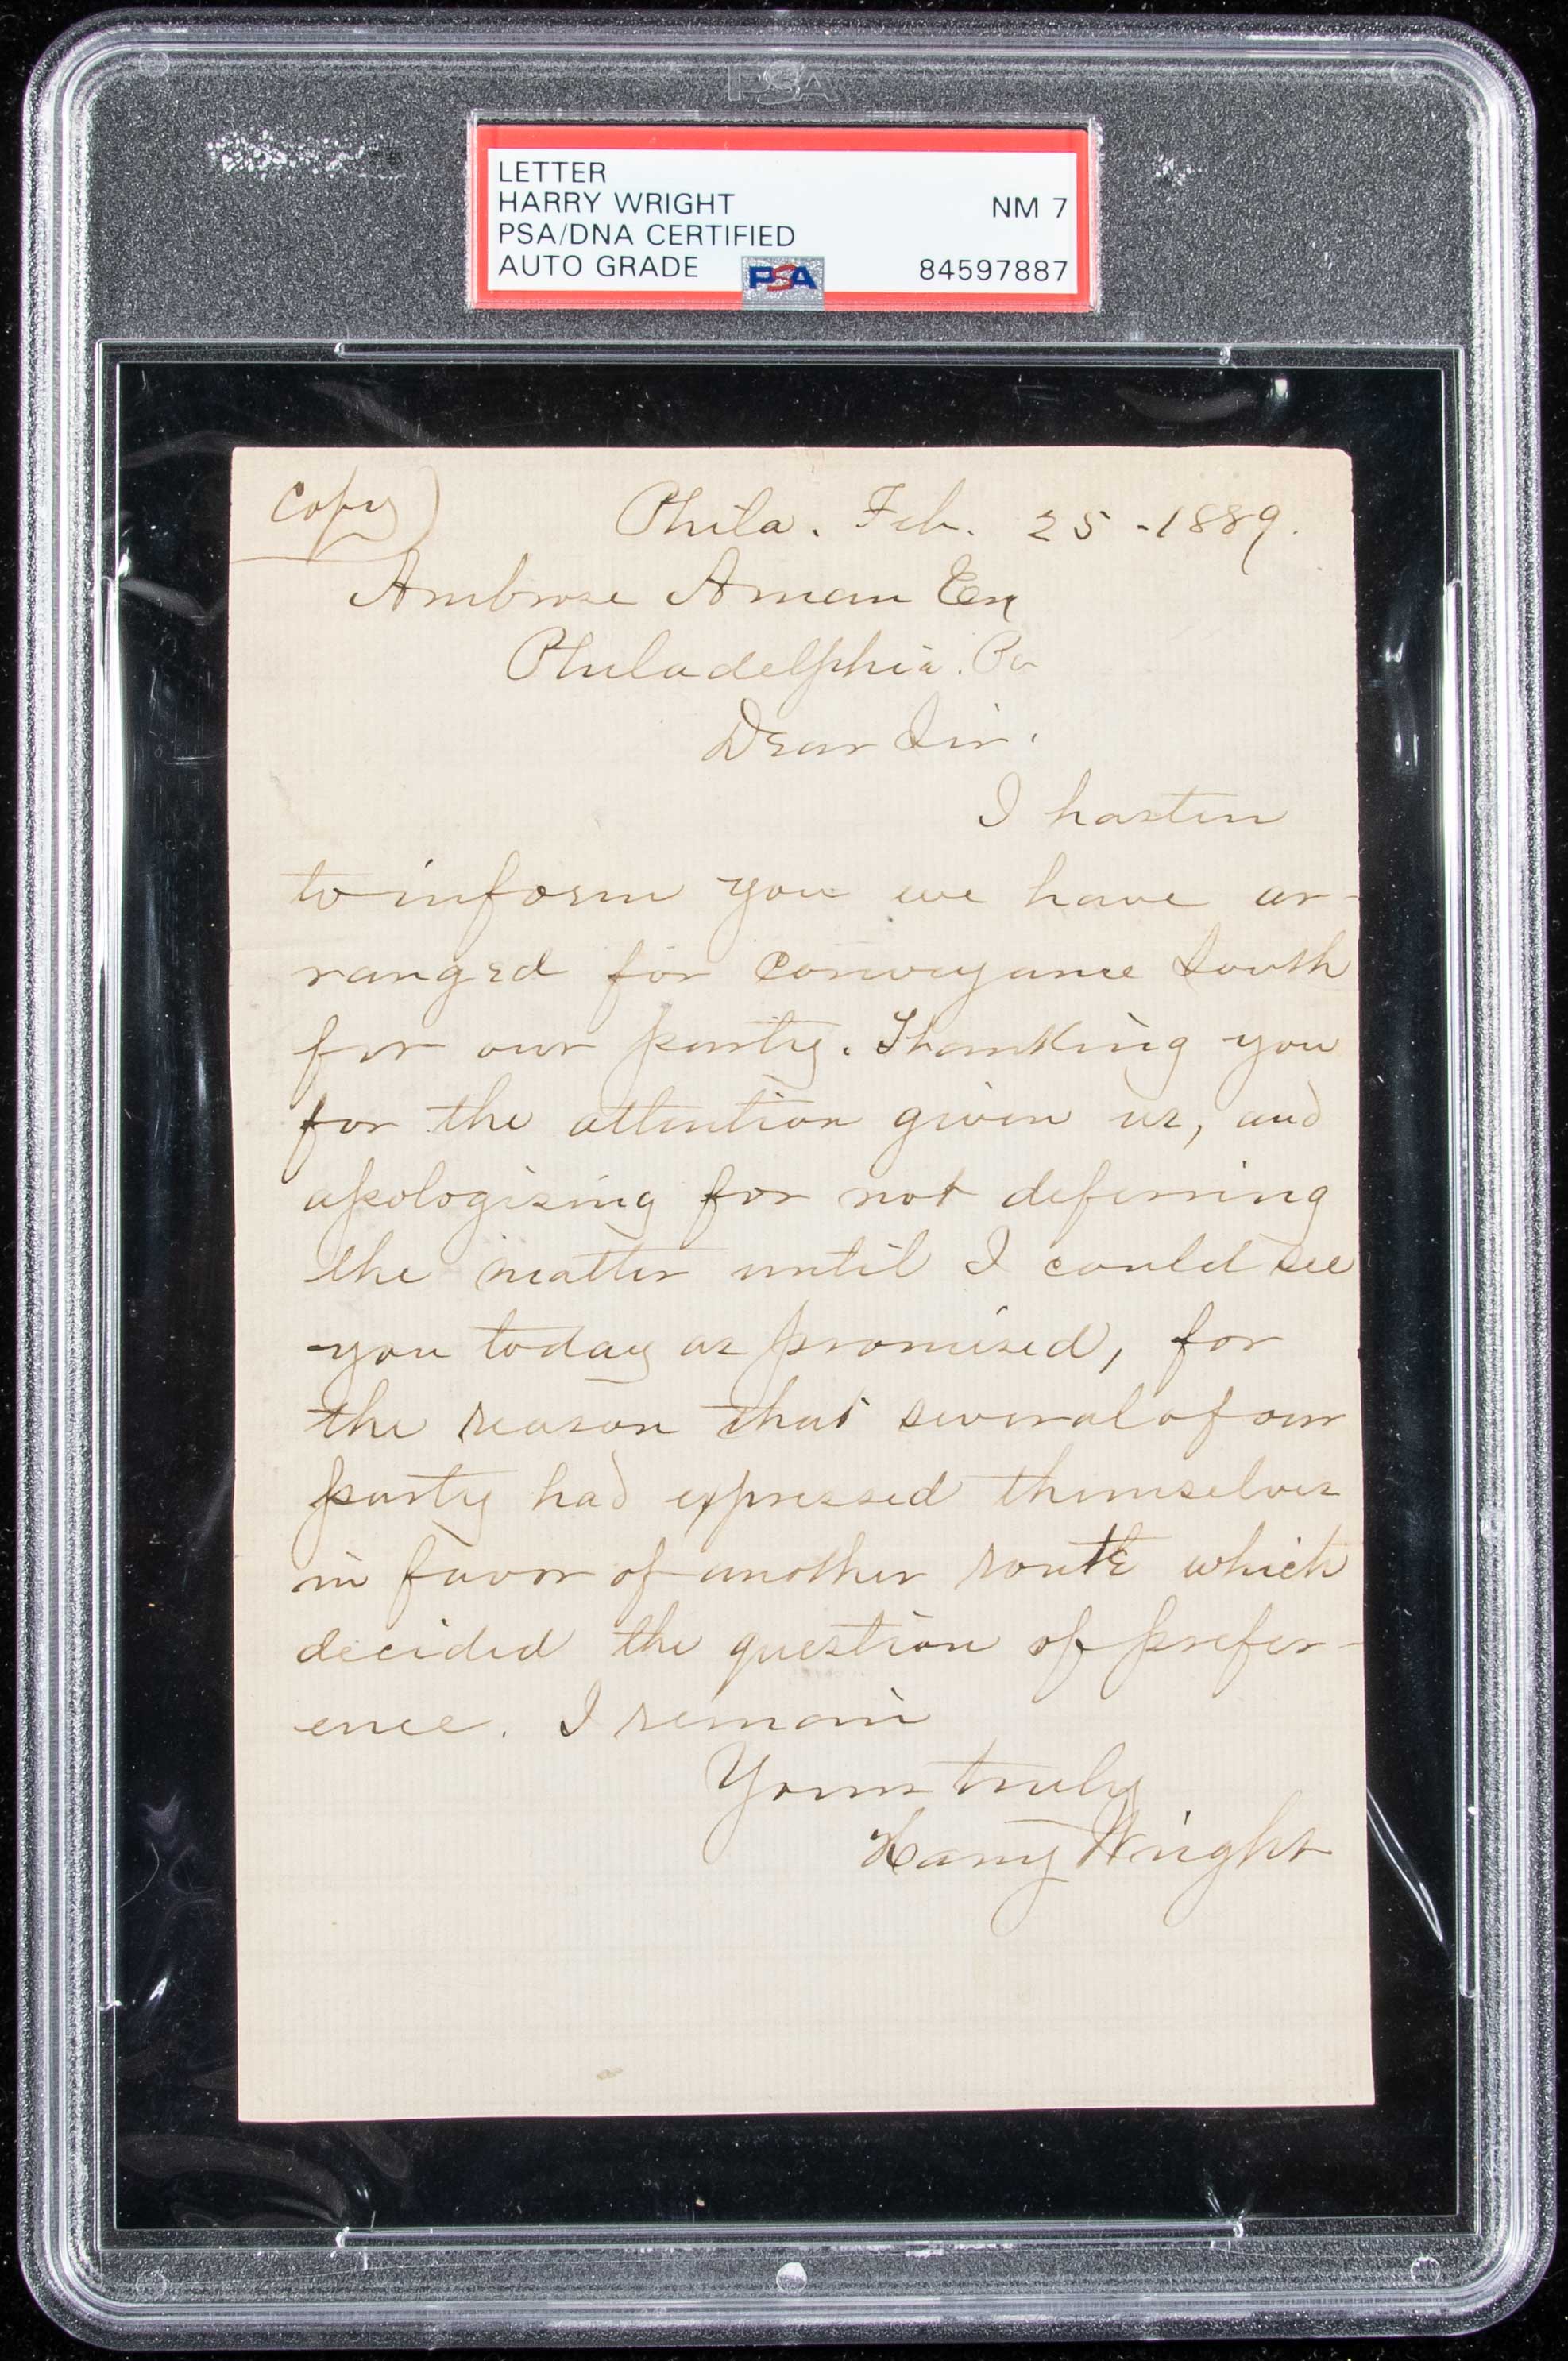 PSA
LETTER
HARRY WRIGHT NM 7
PSA/DNA CERTIFIED
AUTO GRADE PSA 84597887
Copy) Phila. Feb. 25 - 1889.
Ambrose Aman Esq
Philadelphia. Pa
Dear Sir.
I hasten
to inform you we have ar-
ranged for conveyance South
for our party. Thanking you
for the attention given us, and
apologising for not deferring
the matter until I could see
you today as promised, for
the reason that several of our
party had expressed themselves
in favor of another route which
decided the question of prefer-
ence. I remain
Yours truly
Harry Wright